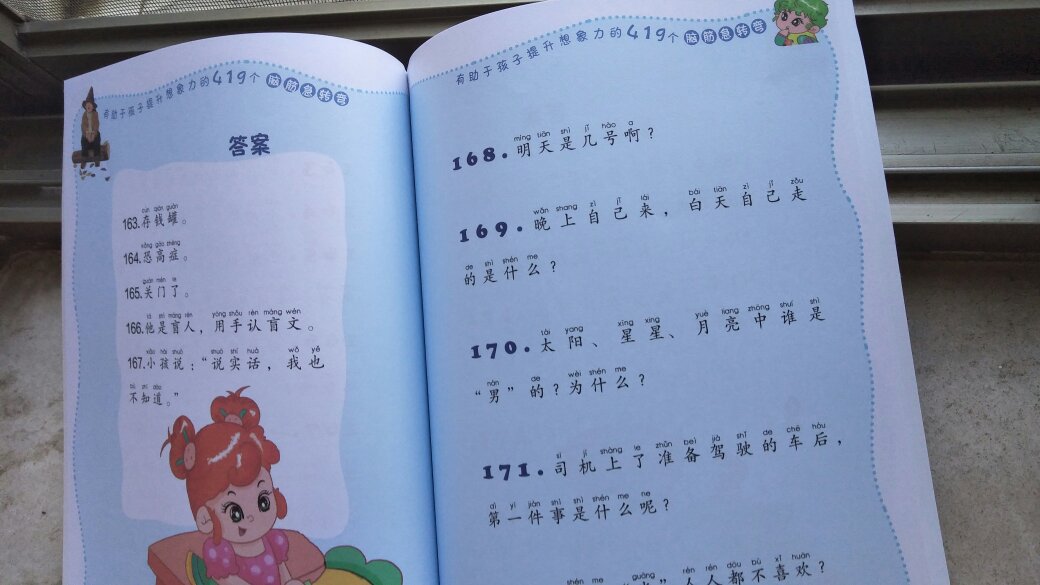 有助于孩子提升想象力的419个脑筋急转弯
答案
cún qián guàn
163.存钱罐。
kǒng gāo zhèng
164.恐高症。
guān mén le
165.关门了。
tā shì máng rén yòng shǒu rèn máng wén
166.他是盲人，用手认盲文。
xiǎo hái shuō shuō shí huà wǒ yě
167.小孩说：“说实话，我也
bù zhī dào
不知道。”
有助于孩子提升想象力的419个脑筋急转弯
míng tiān shì jǐ hào a
168.明天是几号啊？
wǎn shang zì jǐ lái bái tiān zì jǐ zǒu
169.晚上自己来，白天自己走
de shì shén me
的是什么？
tài yang xīng xing yuè liang zhōng shuí shì
170.太阳、星星、月亮中谁是
nán de wèi shén me
“男”的？为什么？
sī jī shàng le zhǔn bèi jià shǐ de chē hòu
171.司机上了准备驾驶的车后，
dì yī jiàn shì shì shén me ne
第一件事是什么呢？
shén me guāng rén rén dōu bù xǐ huān
人人都不喜欢？